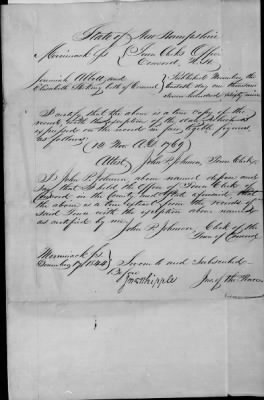 State of New Hampshire
Merrimack ss Town Clerks Office
Concord, N.H.
Jeremiah Abbott and
Elizabeth Stickney both of Concord
Published November the
day one thousand
seven hundred and sixty nine
I certify that the above is a true copy of the
record, with the exception of the
expressed on the record in fair, legible figures,
as follows
(14 Nov A.D. 1769)
Attest John P. Johnson Town Clerk
I John P. Johnson, above named depose and
say that I hold the Office of Town Clerk of
Concord in the County and State aforesaid, that
the above is a true extract from the records of
said Town with the exception above named
as certified by me,
John P. Johnson, Clerk of the
Town of Concord
Merrimack ss
1844 Sworn to and Subscribed
Before
Whipple Jus. of the Peace